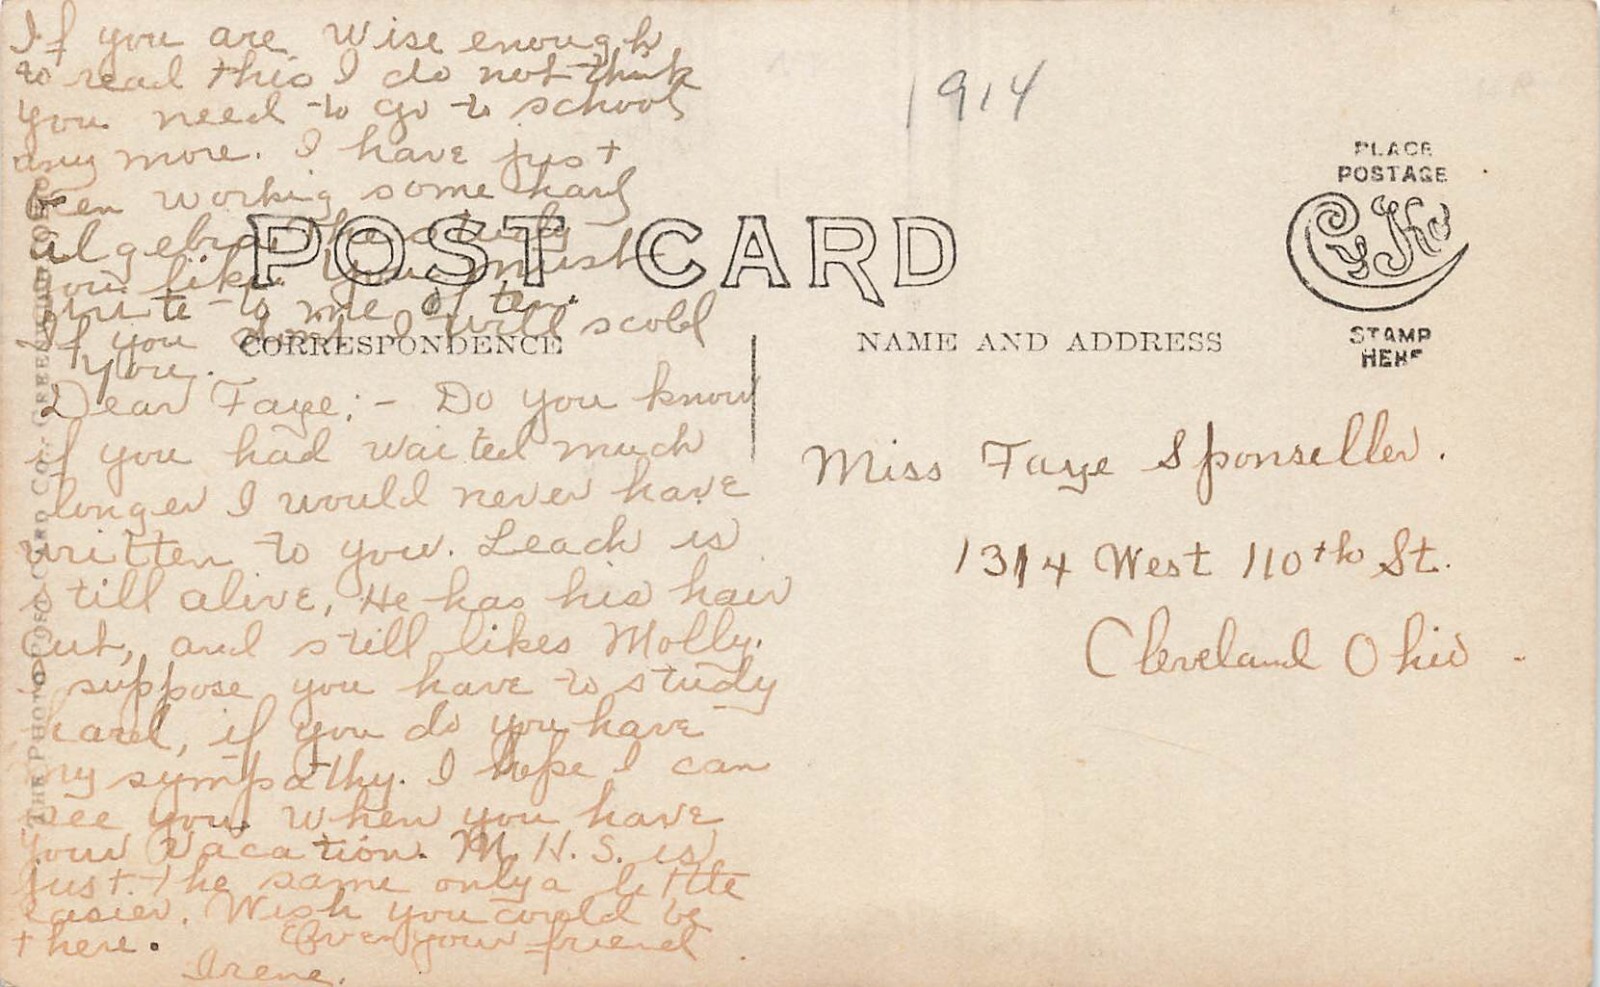 If you are wise enough
to read this I do not think
you need to go to school
any more. I have just
been working some hard
algebra the study
you like. You must
write to me often.
If you dont I will scold
you.
Dear Faye; - Do you know
if you had waited much
longer I would never have
written to you. Leach is
still alive, He has his hair
cut, and still likes Molly.
I suppose you have to study
hard, if you do you have
my sympathy. I hope I can
see you when you have
your vacation. M. H. S. is
just the same only a little
easier. Wish you could be
there. Ever your friend
Irene.
1914
POST CARD
CORRESPONDENCE
NAME AND ADDRESS
PLACE
POSTAGE
CyKo
STAMP
HERE
Miss Faye Sponseller.
1314 West 110th St.
Cleveland Ohio
THE PHOTO POST CARD CO.